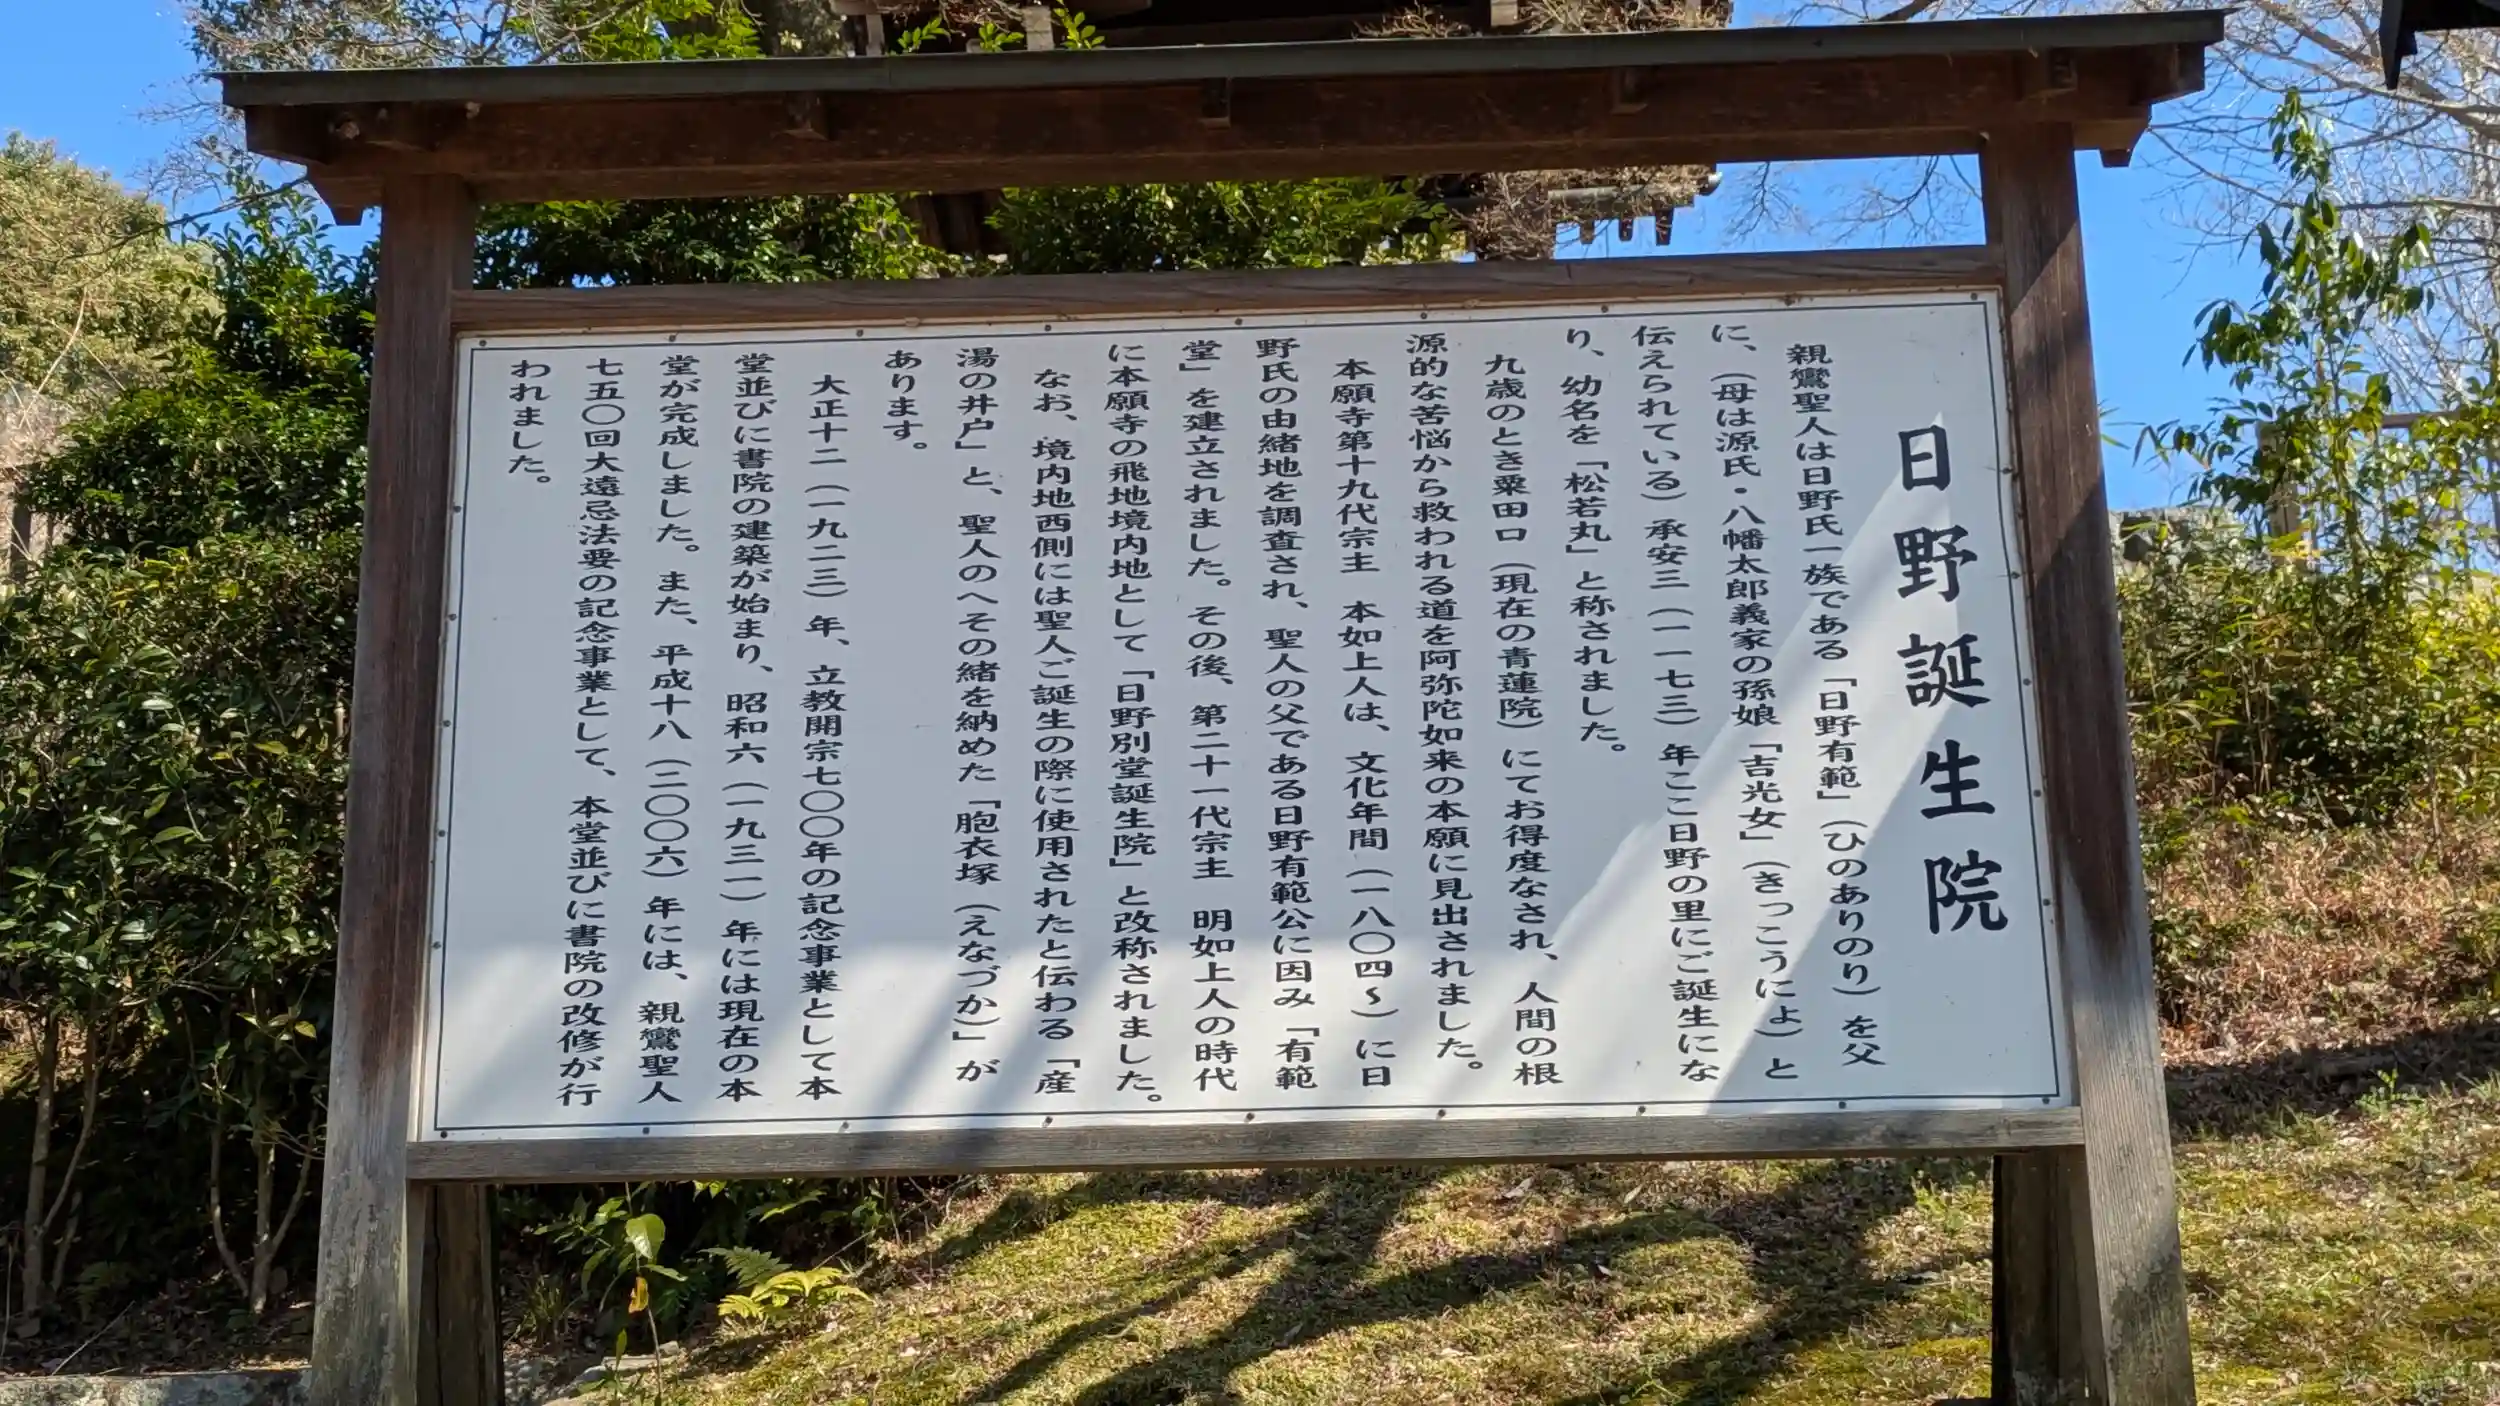 日野誕生院
親鸞聖人は日野氏一族である「日野有範」（ひのありのり）を父
に、（母は源氏・八幡太郎義家の孫娘「吉光女」（きっこうにょ）と
伝えられている）承安三（一一七三）年ここ日野の里にご誕生にな
り、幼名を「松若丸」と称されました。
九歳のとき粟田口（現在の青蓮院）にてお得度なされ、人間の根
源的な苦悩から救われる道を阿弥陀如来の本願に見出されました。
本願寺第十九代宗主　本如上人は、文化年間（一八〇四～）に日
野氏の由緒地を調査され、聖人の父である日野有範公に因み「有範
堂」を建立されました。その後、第二十一代宗主　明如上人の時代
に本願寺の飛地境内地として「日野別堂誕生院」と改称されました。
なお、境内地西側には聖人ご誕生の際に使用されたと伝わる「産
湯の井戸」と、聖人のへその緒を納めた「胞衣塚（えなづか）」が
あります。
大正十二（一九二三）年、立教開宗七〇〇年の記念事業として本
堂並びに書院の建築が始まり、昭和六（一九三一）年には現在の本
堂が完成しました。また、平成十八（二〇〇六）年には、親鸞聖人
七五〇回大遠忌法要の記念事業として、本堂並びに書院の改修が行
われました。